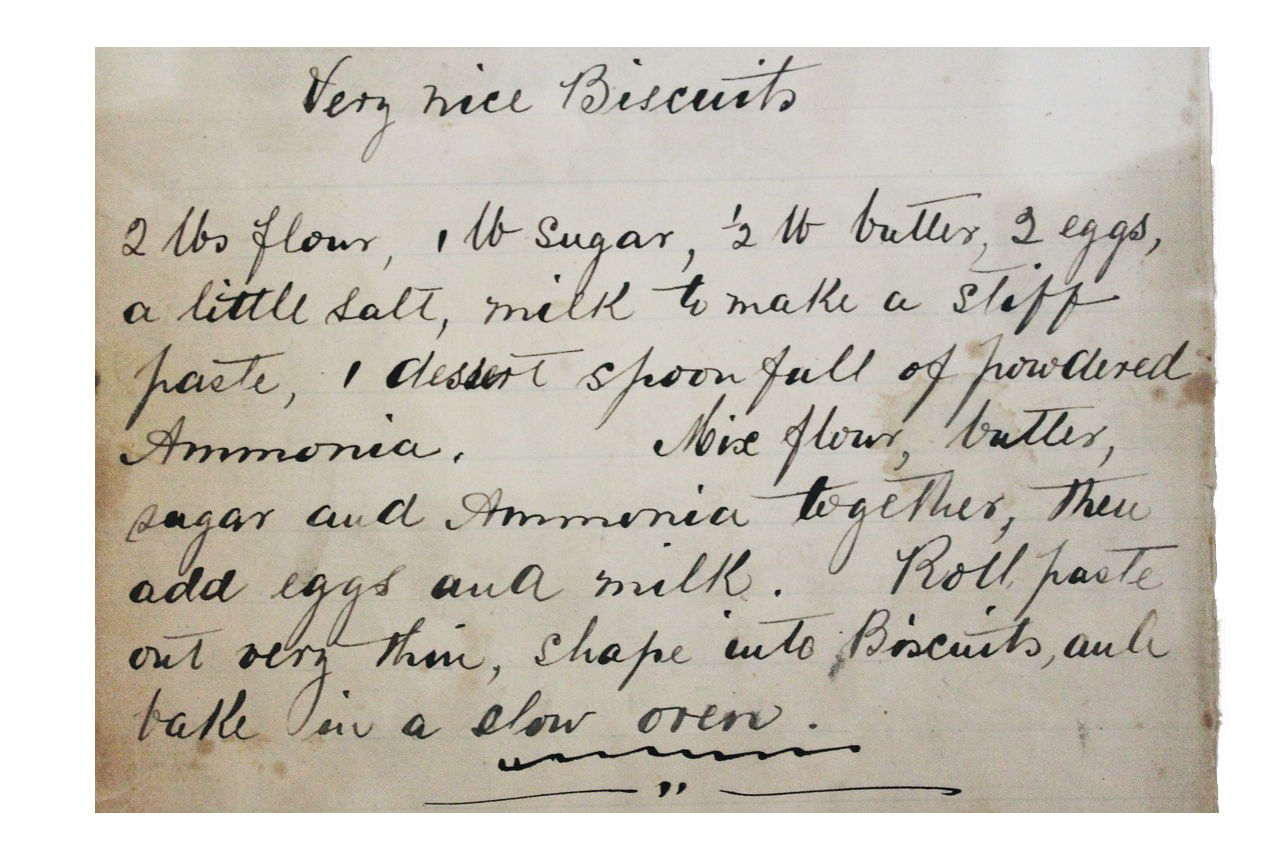 Very nice Biscuits
2 lbs flour, 1 lb sugar, ½ lb butter, 2 eggs,
a little salt, milk to make a stiff
paste, 1 dessert spoon full of powdered
Ammonia. Mix flour, butter,
sugar and Ammonia together, then
add eggs and milk. Roll paste
out very thin, shape into Biscuits, and
bake in a slow oven.